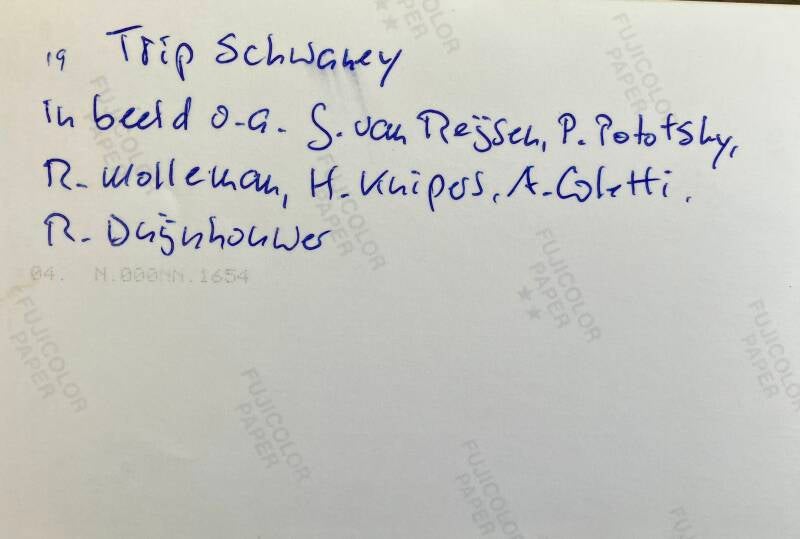 19 Trip Schwaney
in beeld o.a. S. van Reijsen, P. Pototsky,
R. Molleman, H. Knipos, A. Coletti.
R. Duijnhouwer
04. N.000NN.1654
FUJICOLOR PAPER
FUJICOLOR PAPER
FUJICOLOR PAPER
FUJICOLOR PAPER
FUJICOLOR PAPER
FUJICOLOR PAPER
FUJICOLOR PAPER
FUJICOLOR PAPER
FUJICOLOR PAPER